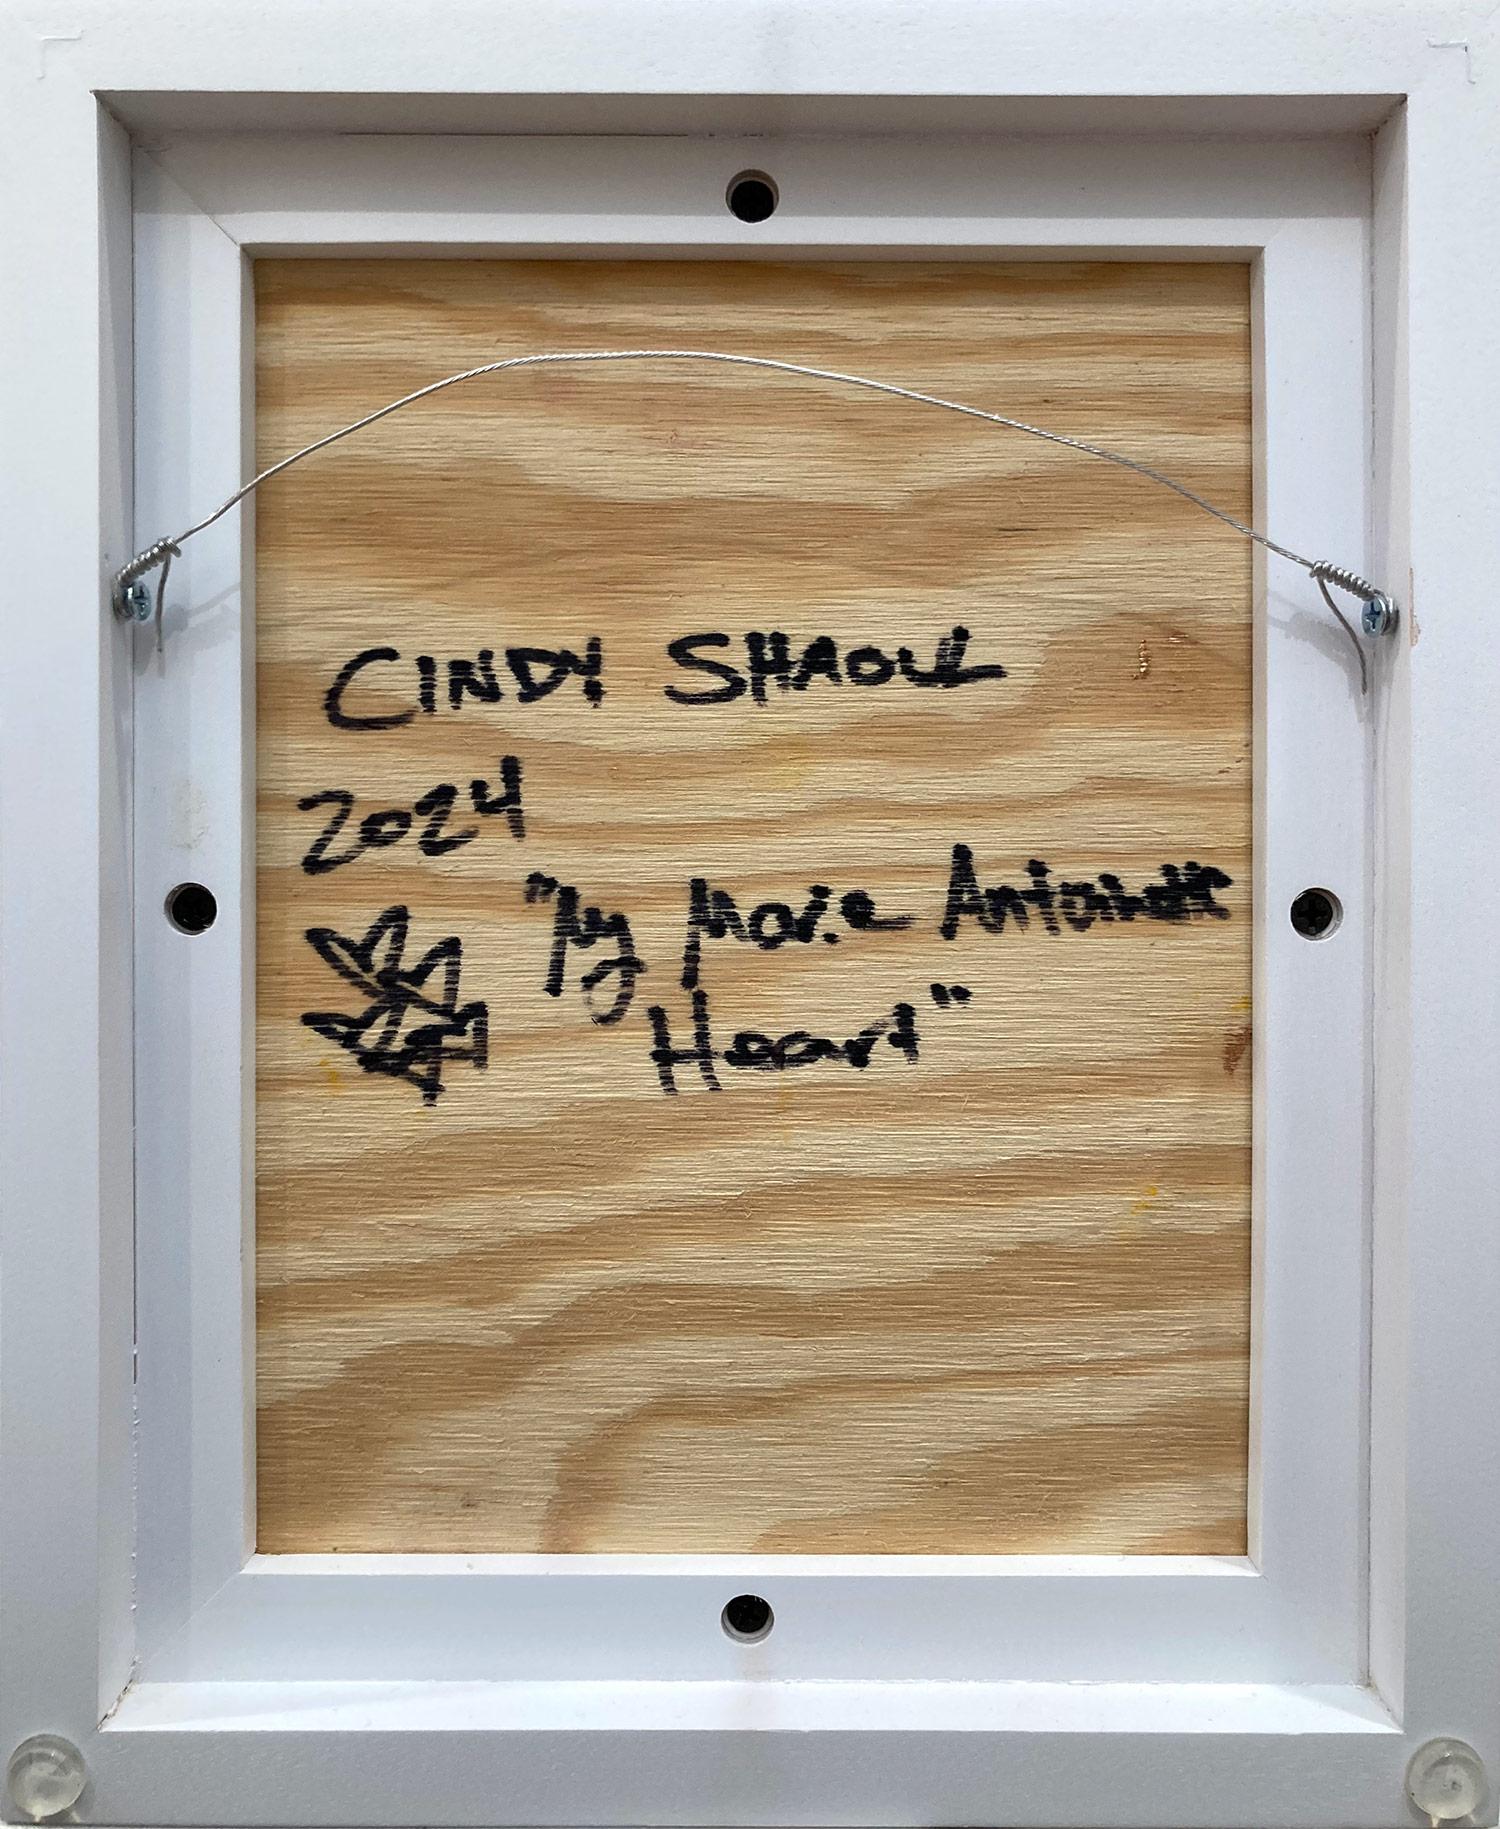 CINDY SHAOUL
2024
"My Marie Antoinette
Heart"